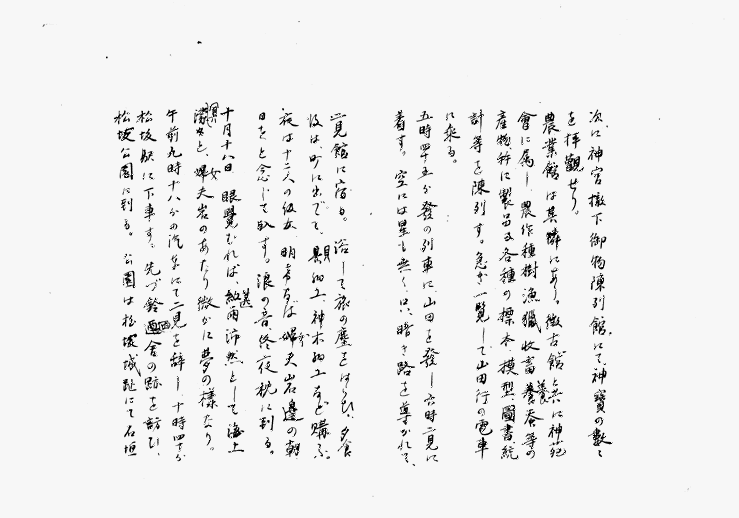 次に神宮撤下御物陳列館にて、神寶の數々
を拝觀せり。
農業館は其隣にあり。徴古館と共に神苑
會に属し、農作種樹漁獵牧畜養蚕等の
産物幷に製品及各種の標本、模型、圖書、統
計等を陳列す。急ぎ一覧して山田行の電車
に乗る。
五時四十五分發の列車に、山田を發し六時二見に
着す。空には星も無く只、暗き路を導かれて、
二見館に宿る。浴して旅の塵をはらひ、夕食
後は、町に出でて、貝細工、神木細工など購ふ。
夜は十二人の級友、明方をば婦夫岩邊の朝
日をと念じて臥す。浪の音、終夜枕に到る。
十月十八日 眼覺むれば、紋雨沛然として海上
濛々と、婦夫岩のあたり微かに夢の様なり。
午前九時十八分の汽車にて二見を辞し、十時四十分
松坂駅に下車す。先づ鈴廼舎の跡を訪ひ、
松坂公園に到る。公園は松坂城趾にて石垣